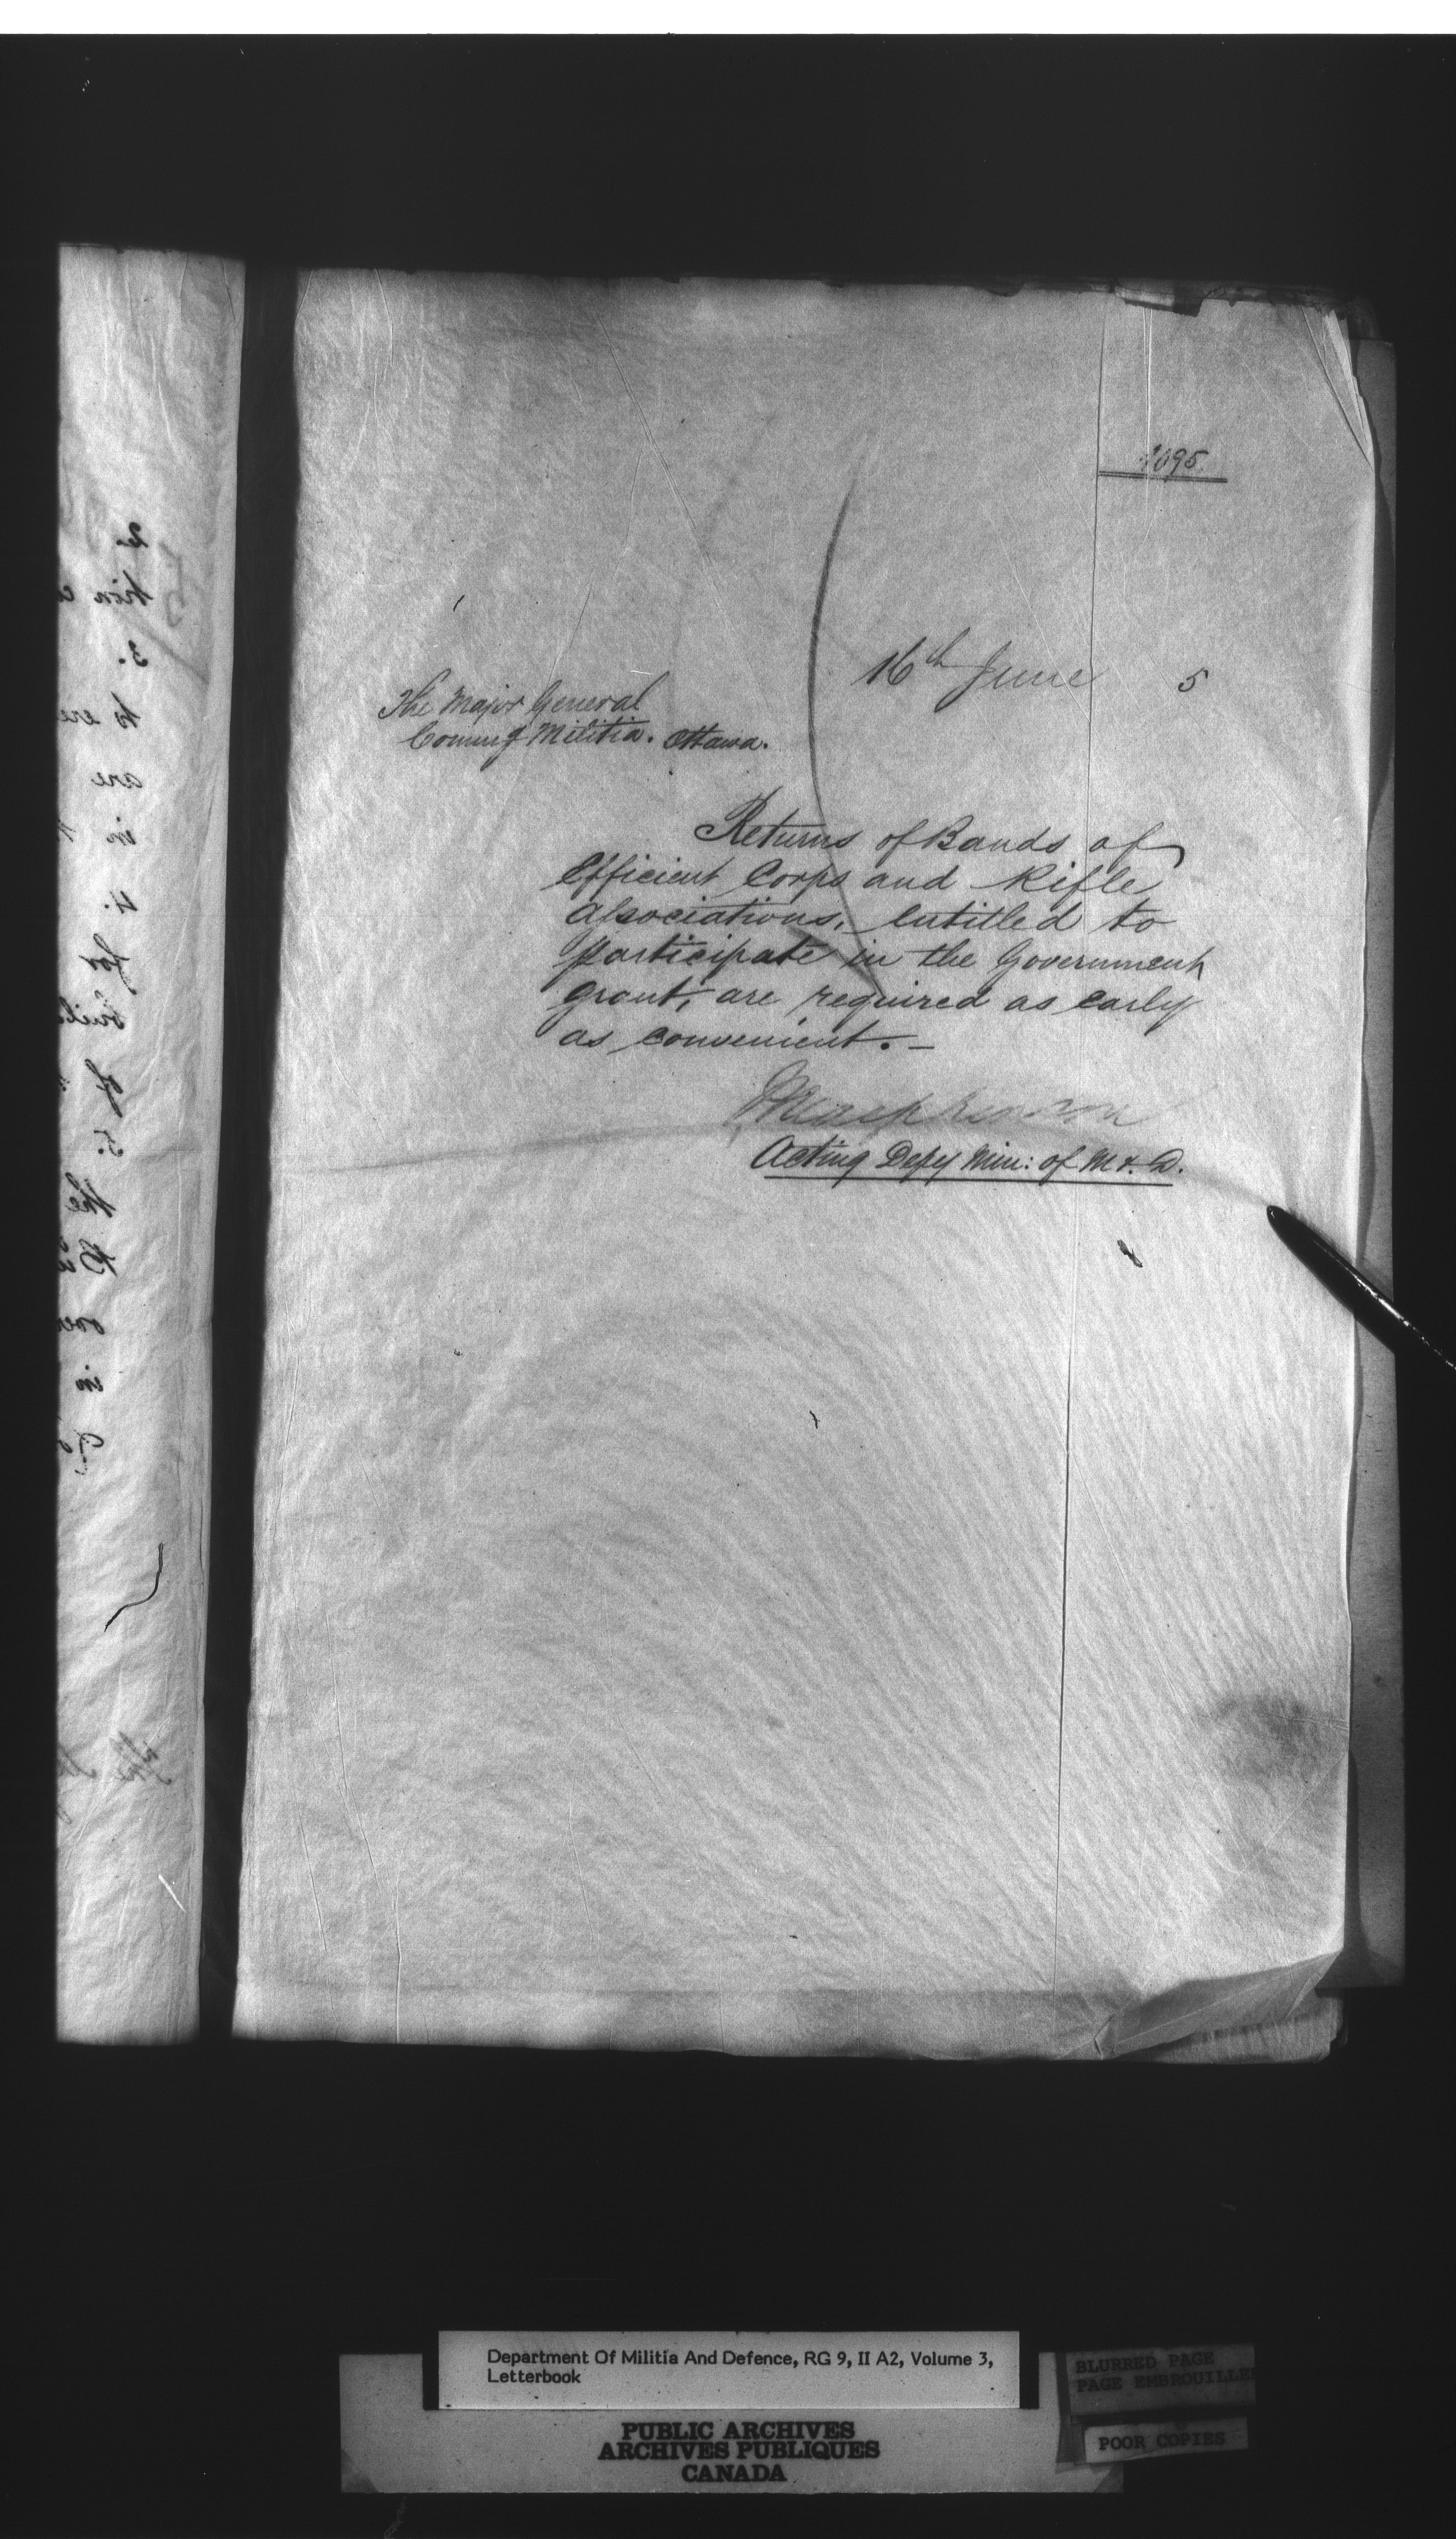 1095
16th June 5
The Major General
Comm'g Militia. Ottawa.
Returns of Bands of
Efficient Corps and Rifle
Associations, entitled to
participate in the Government
grant, are required as early
as convenient. –
Acting Depy Min: of M & D.
2.
tion
3.
to ere
are
in
4.
for
buil
of
5.
the
over
in
Department Of Militia And Defence, RG 9, II A2, Volume 3,
Letterbook
PUBLIC ARCHIVES
ARCHIVES PUBLIQUES
CANADA
BLURRED PAGE
PAGE EMBROUILLE
POOR COPIES